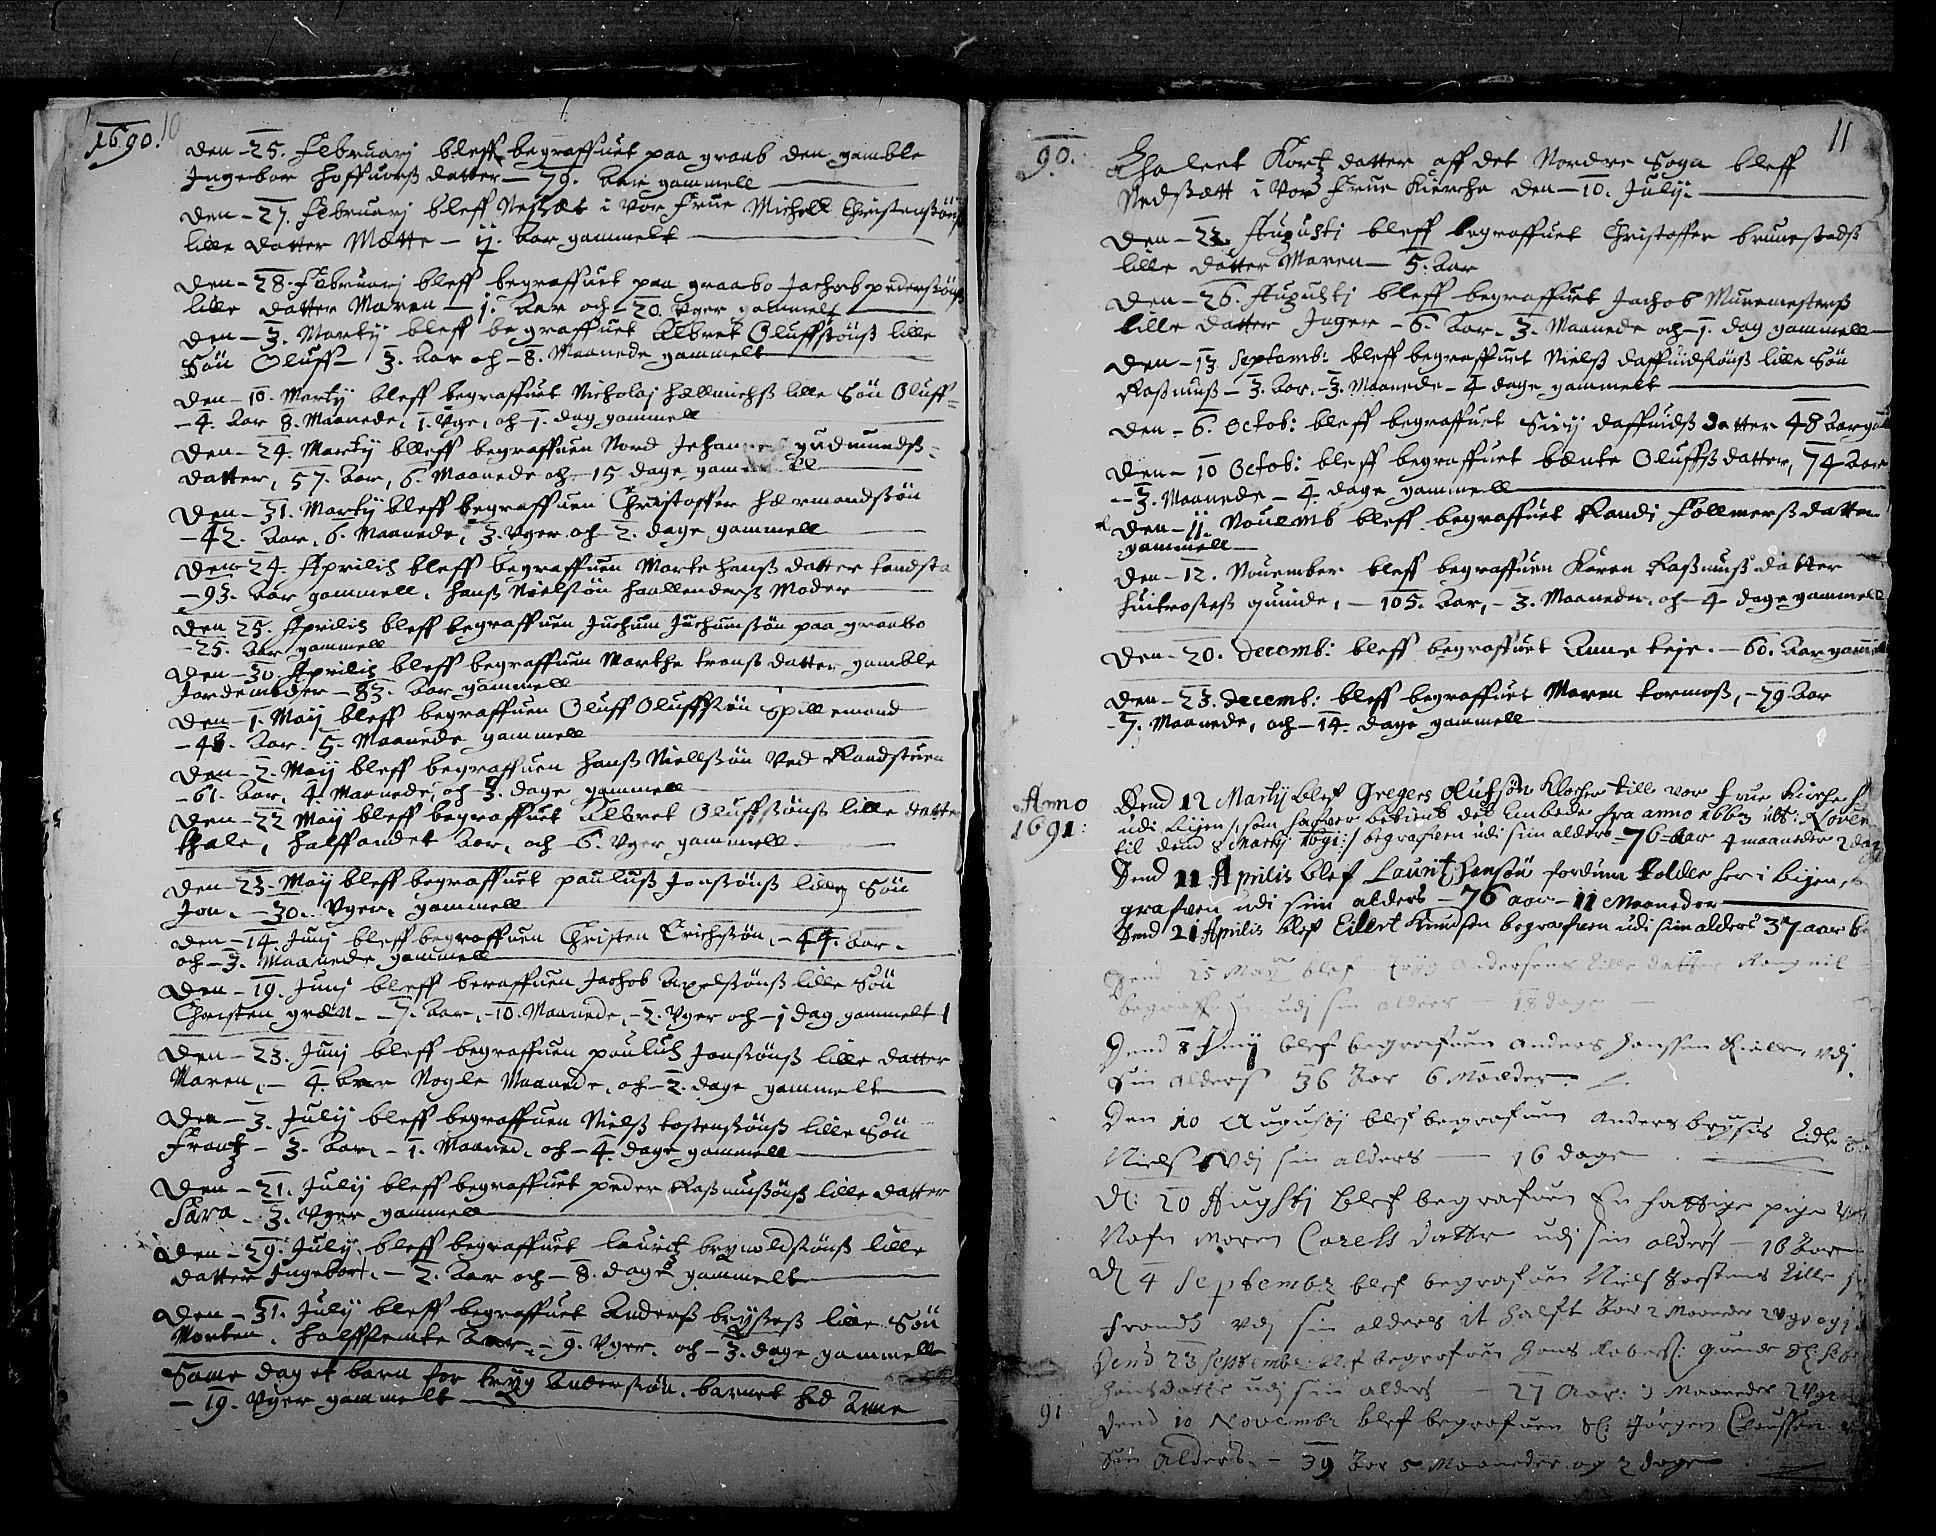 1690. 10
Den – 25. Februarj bleff begraffuet paa graab den gamble
Ingebor hoffuorß datter – 79. Aar gammell
Den – 27. Februarj bleff Nedsæt i Vor Frue Michell Christensønß
lille datter Mætte – 11. Aar gammelt
Den – 28. Februarj bleff begraffuet paa graabo Jachob pedersønß
lille datter Maren – 1. Aar och – 20. Vger gammelt
Den – 3. Martij bleff begraffuet Albret Oluffsønß lille
Søn Oluff – 3. Aar och – 8. Maanede gammelt
Den – 10. Martij bleff begraffuet Nicholaj hællmichß lille Søn Oluff –
– 4. Aar 8. Maanede, 1. Vge, och – 1. dag gammell
Den – 24. Martij bleff begraffuen Nord Jehannes gudmundß
datter, 57. Aar, 6. Maanede och – 15 dage gammell
Den – 31. Martij bleff begraffuen Christoffer hærmandsøn
– 42. Aar, 6. Maanede, 3. Vger och – 2. dage gammell
Den – 24. Aprilis bleff begraffuen Marte hanß datter
– 93. Aar gammell, hanß Nielsøn haallenderß Moder
Den 25. Aprilis bleff begraffuen Juchum Juchumsøn paa graabo
– 25. Aar gammell
Den – 30. Aprilis bleff begraffuen Marthe trenß datter gamble
Jordemoder – 83. Aar gammell
Den – 1. Maij bleff begraffuen Oluff Oluffsøn Spillemand
– 48. Aar. 5. Maanede gammell
Den – 2. Maij bleff begraffuen hanß Niellsøn Ved
– 61. Aar, 4. Maanede, och – 3. dage gammell
Den – 22 Maij bleff begraffuet Albret Oluffsønß lille datter
thale, halffandet Aar, och – 6. Vger gammell
Den – 23. Maij bleff begraffuet paulluß Jonsønß lille Søn
Jon. – 30. Vger. gammell
Den – 14. Junj bleff begraffuen Christen Erichsøn, – 44. Aar.
och – 3. Maanede gammell
Den – 19. Junj bleff beraffuen Jachob Axelsønß lille Søn
Christen græn. – 7. Aar, – 10. Maanede, – 2. Vger och – 1 dag gammelt
Den – 23. Junj bleff begraffuen pauluß Jonsønß lille datter
Maren, – 4. Aar Nogle Maanede, och – 2. dage gammelt
Den – 3. Julij bleff begraffuen Nielß tostensønß lille Søn
Frantz – 3. Aar, – 1. Maaned, och – 4. dage gammell
Den – 21. Julij bleff begraffuet peder Raßmusønß lille datter
Sara – 3. Vger gammell
Den – 29. Julij, bleff begraffuet lauritz brynoldsønß lille
datter Ingebor. – 2. Aar och – 8. dage gammelt
Den – 31. Julij bleff begraffuet Anderß bryßeß lille Søn
Morten. halfffemte Aar, – 9. Vger. och – 3. dage gammelt
Same dag et barn for tryg Andersøn. barnet hed Anne
– 19. Vger gammelt
90. 11
Kortz datter aff det Nordre Sogn bleff
Nedsætt i Vor Frue Kierche den – 10. Julij
Den – 22. Augustj bleff begraffuet Christoffer brunestadß
lille datter Maren – 5. Aar
Den – 26. Augustj bleff begraffuet Jachob Muremesterß
lille datter Inger – 6. Aar. 3. Maanede och – 1. dag gammell
Den – 13. Septemb: bleff begraffuet Nielß daffuidsønß lille Søn
Raßmuß – 3. Aar. – 3. Maanede – 4 dage gammelt
Den – 6. Octob: bleff begraffuet Sirij daffuidß datter 48 Aar
Den – 10 Octob: bleff begraffuet bænte Oluffß datter, 74 Aar
– 3. Maanede – 4. dage gammell
Den – 11. Nouemb bleff begraffuet Randi Follmerß datter
gammell
Den – 12. Nouember bleff begraffuen Karen Raßmuß datter
quinde, – 105. Aar, – 3. Maaneder och – 4 dage gammell
Den – 20. decemb: bleff begraffuet Anne teje. – 60. Aar gammell
Den – 23. decemb: bleff begraffuet Maren tormoß, – 79. Aar
– 7. Maanede, och – 14. dage gammell
Anno
1691:
Dend 12 Martij blef Gregers Olufsøn Klocher till vor Frue Kirche
udi Bijen /: som hafver betient det Embede fra anno 1663
til dend 8 Martij 1691 :/ begrafven udi sin alders – 76 – aar 4 maaneder 2 dag
Dend 11 Aprilis blef Laurit Hansøn fordum tolder her i bijen,
grafven udi sin alders – 76 aar – 11 Maaneder
Dend 21 Aprilis blef Eilert Knudsen begrafven udi sin alders 37 aar
Dend 25 Maij blef tryg Andersens lille datter
udj sin alders – 18 dage
Dend 8 Junij blef begrafuen Anders Hanssen udj
Sin alders 36 Aar 6 Maaneder
Den 10 Augustj blef begrafuen Anders bryses lidle
Niels udj sin alders – 16 dage
D: 20 Augustj blef begrafuen En fattige pige
Nafn Maren Carels datter udj sin alders – 16 Aar
D 4 September blef begrafuen Niels tostens lille
Frandz udj sin alders it halft Aar 2 Maaneder
Dend 23 September blef begrafuen Hans
Hansdatter udj sin alders – 27 Aar: 3 Maaneder 2 Vger
91
Dend 10 November blef begrafuen Jørgen Claussøn
Sin Alders. – 39 Aar 5 Maaneder og 2 dage